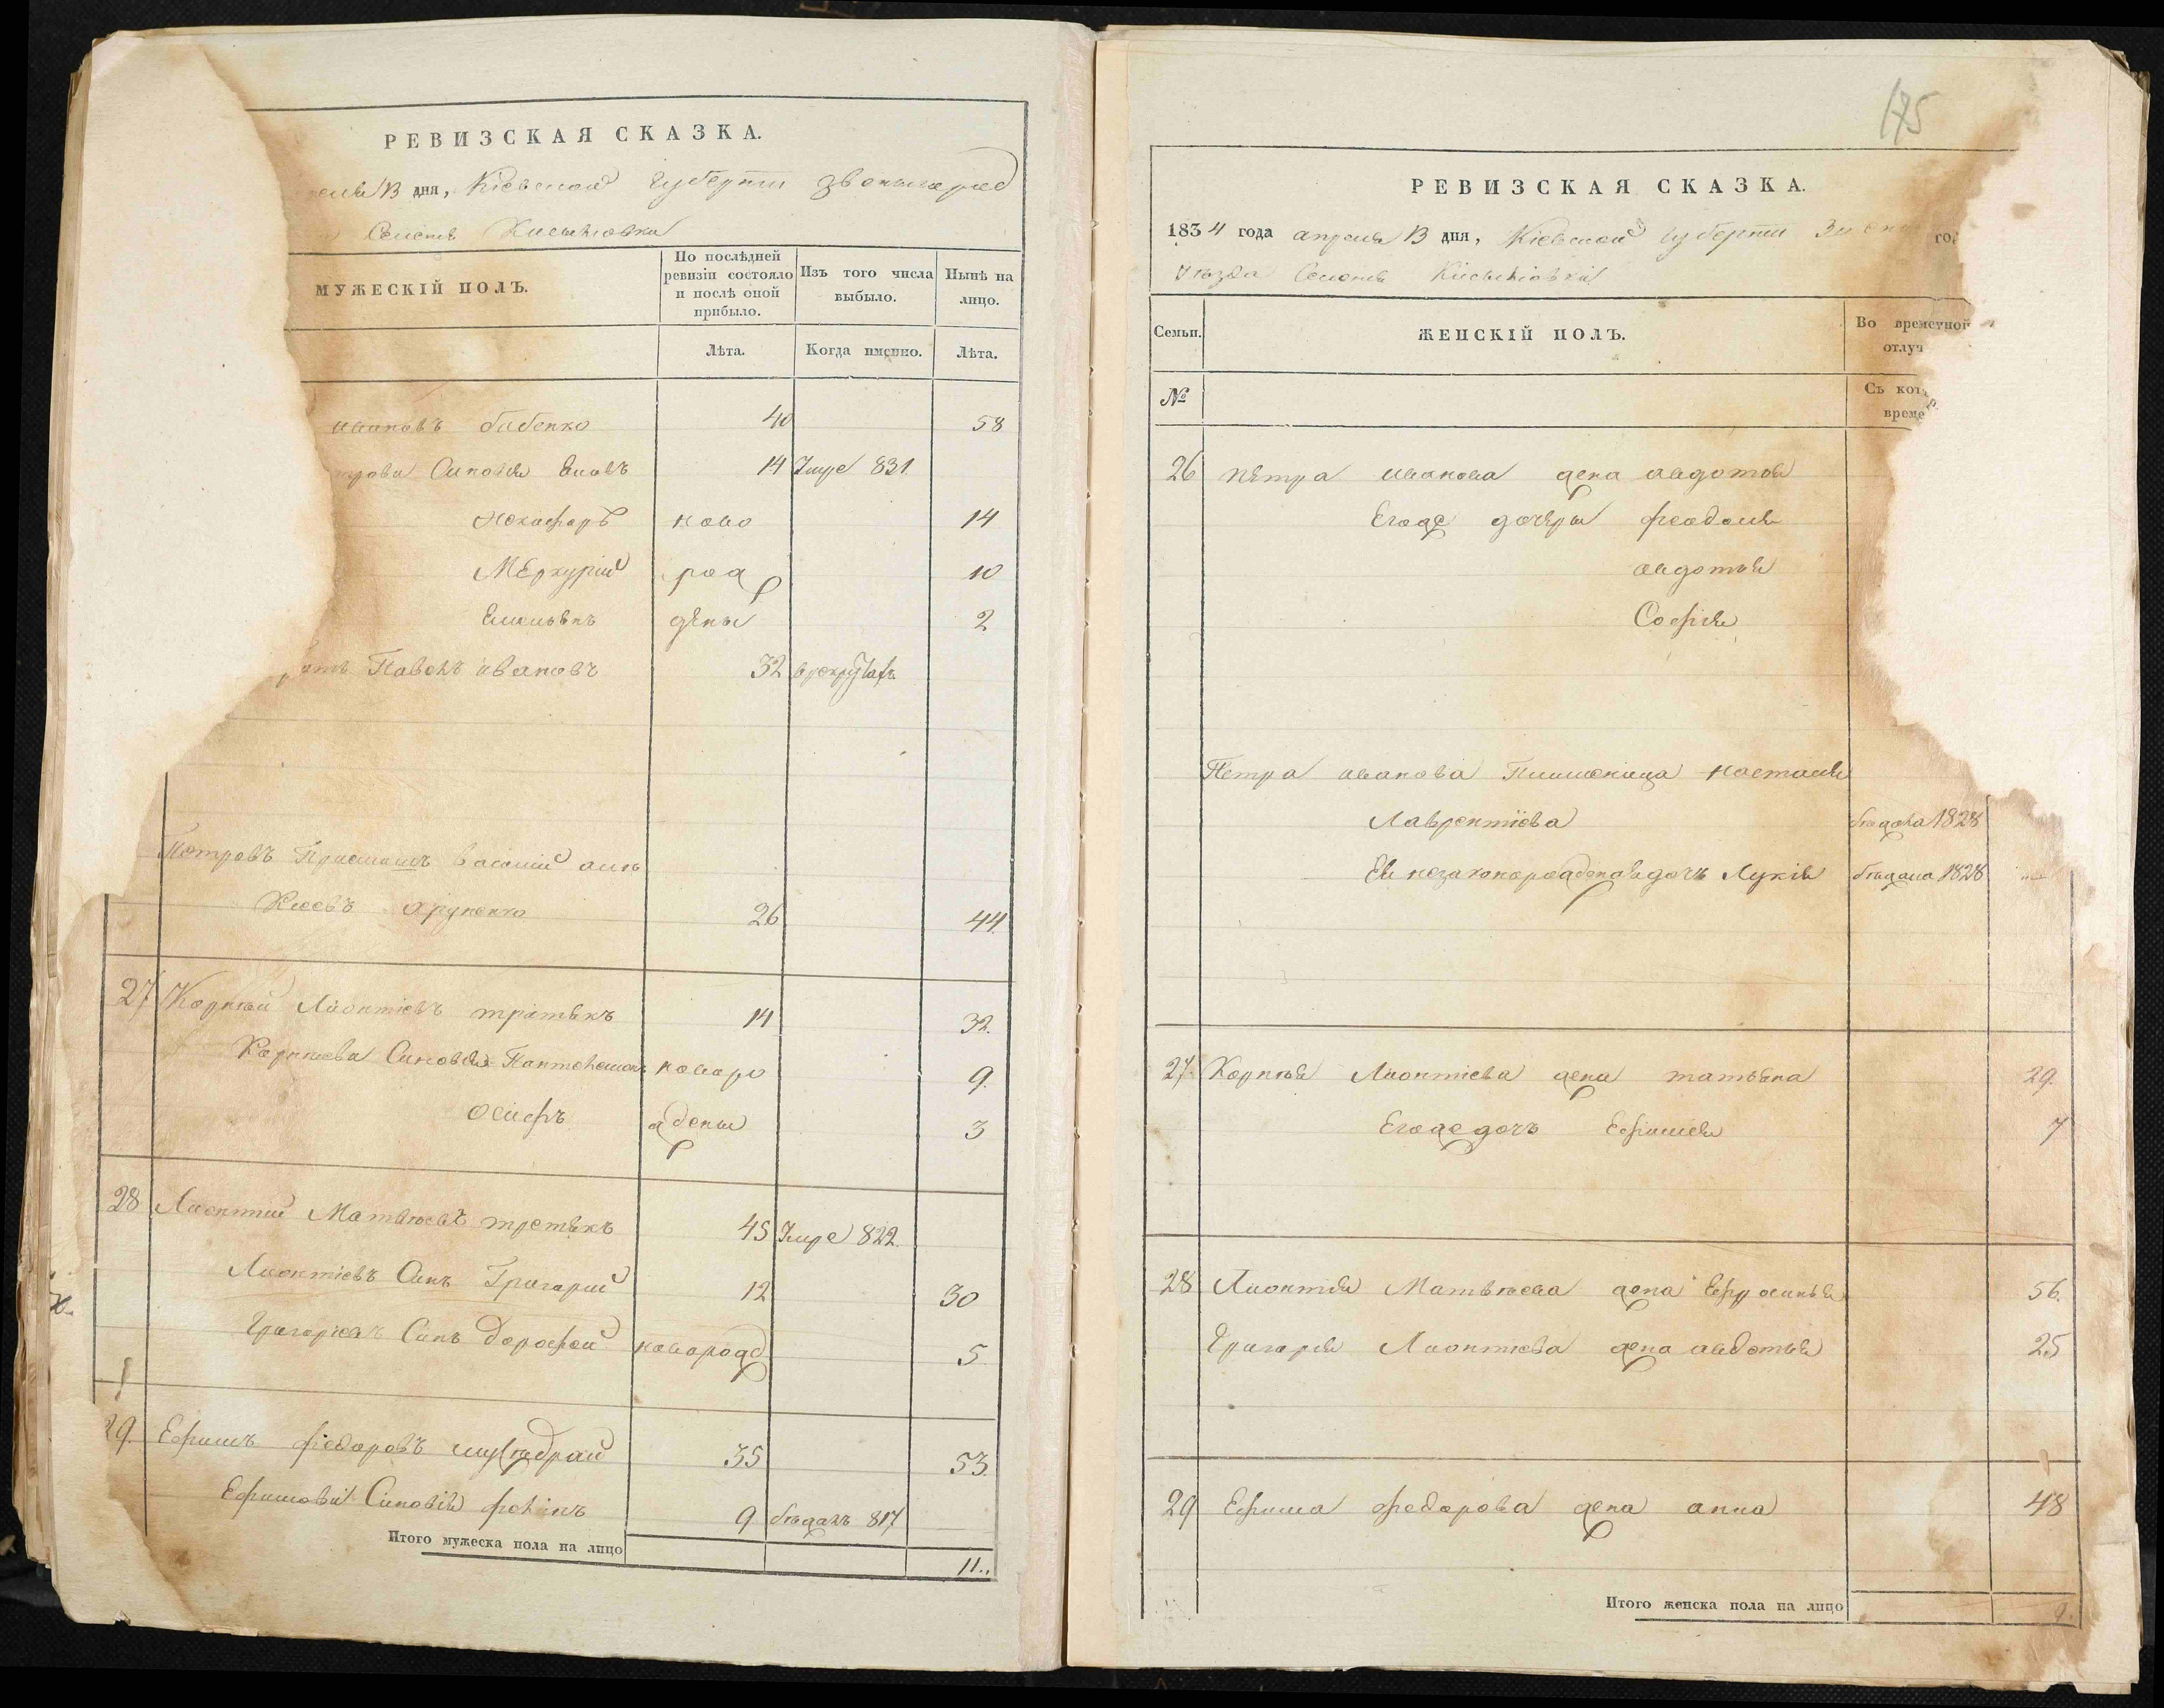 РЕВИЗСКАЯ СКАЗКА.
13 дня, Кіевской губерніи звенигород
Селенія
МУЖЕСКІЙ ПОЛЪ.
По послѣдней ревизіи состояло и послѣ оной прибыло.
Изъ того числа выбыло.
Нынѣ на лицо.
Лѣта.
Когда именно.
Лѣта.
ивановъ бабенко 40 58
трова Синовія 14 Умре 831.
ново 14
Меркурій рож 10
Емельянъ дены 2
Павелъ ивановъ 32
Петровъ Приемишъ василий
26 44.
27 Корнѣй Лионтіевъ третякъ 14 32.
Корнѣева Синовія Пантелимонъ новоро 9.
Осипъ ждены 3
28 Лионтий Матвѣевъ третякъ 45 Умре 822.
Лионтіевъ Синъ Григорий 12 30
Григориевъ Синъ дорофей новорожд 5.
29. Ефимъ федоровъ 35 53.
Ефимови Синовія 9 бѣжалъ 817
Итого мужеска пола на лицо 11..
175
РЕВИЗСКАЯ СКАЗКА.
1834 года апреля 13 дня, Кіевской губерніи год
Уезда Селенія
Семьи.
ЖЕНСКІЙ ПОЛЪ.
Во временной отлуч
№
Съ кот
време
26 Петра иванова жена авдотия
Егоже дочери феодосия
авдотия
София
Петра иванова Племеница настасия
Лаврентіева бѣжала 1828
Ея незаконорожденая дочъ Лукія бѣжала 1828
27. Корнѣя Лионтіева жена татьяна 29.
Егоже дочъ Ефимия 7
28 Лионтия Матвѣева жена Ефросинья 56.
Григория Лионтиева жена авдотья 25
29 Ефима федорова жена анна 48
Итого женска пола на лицо 9.